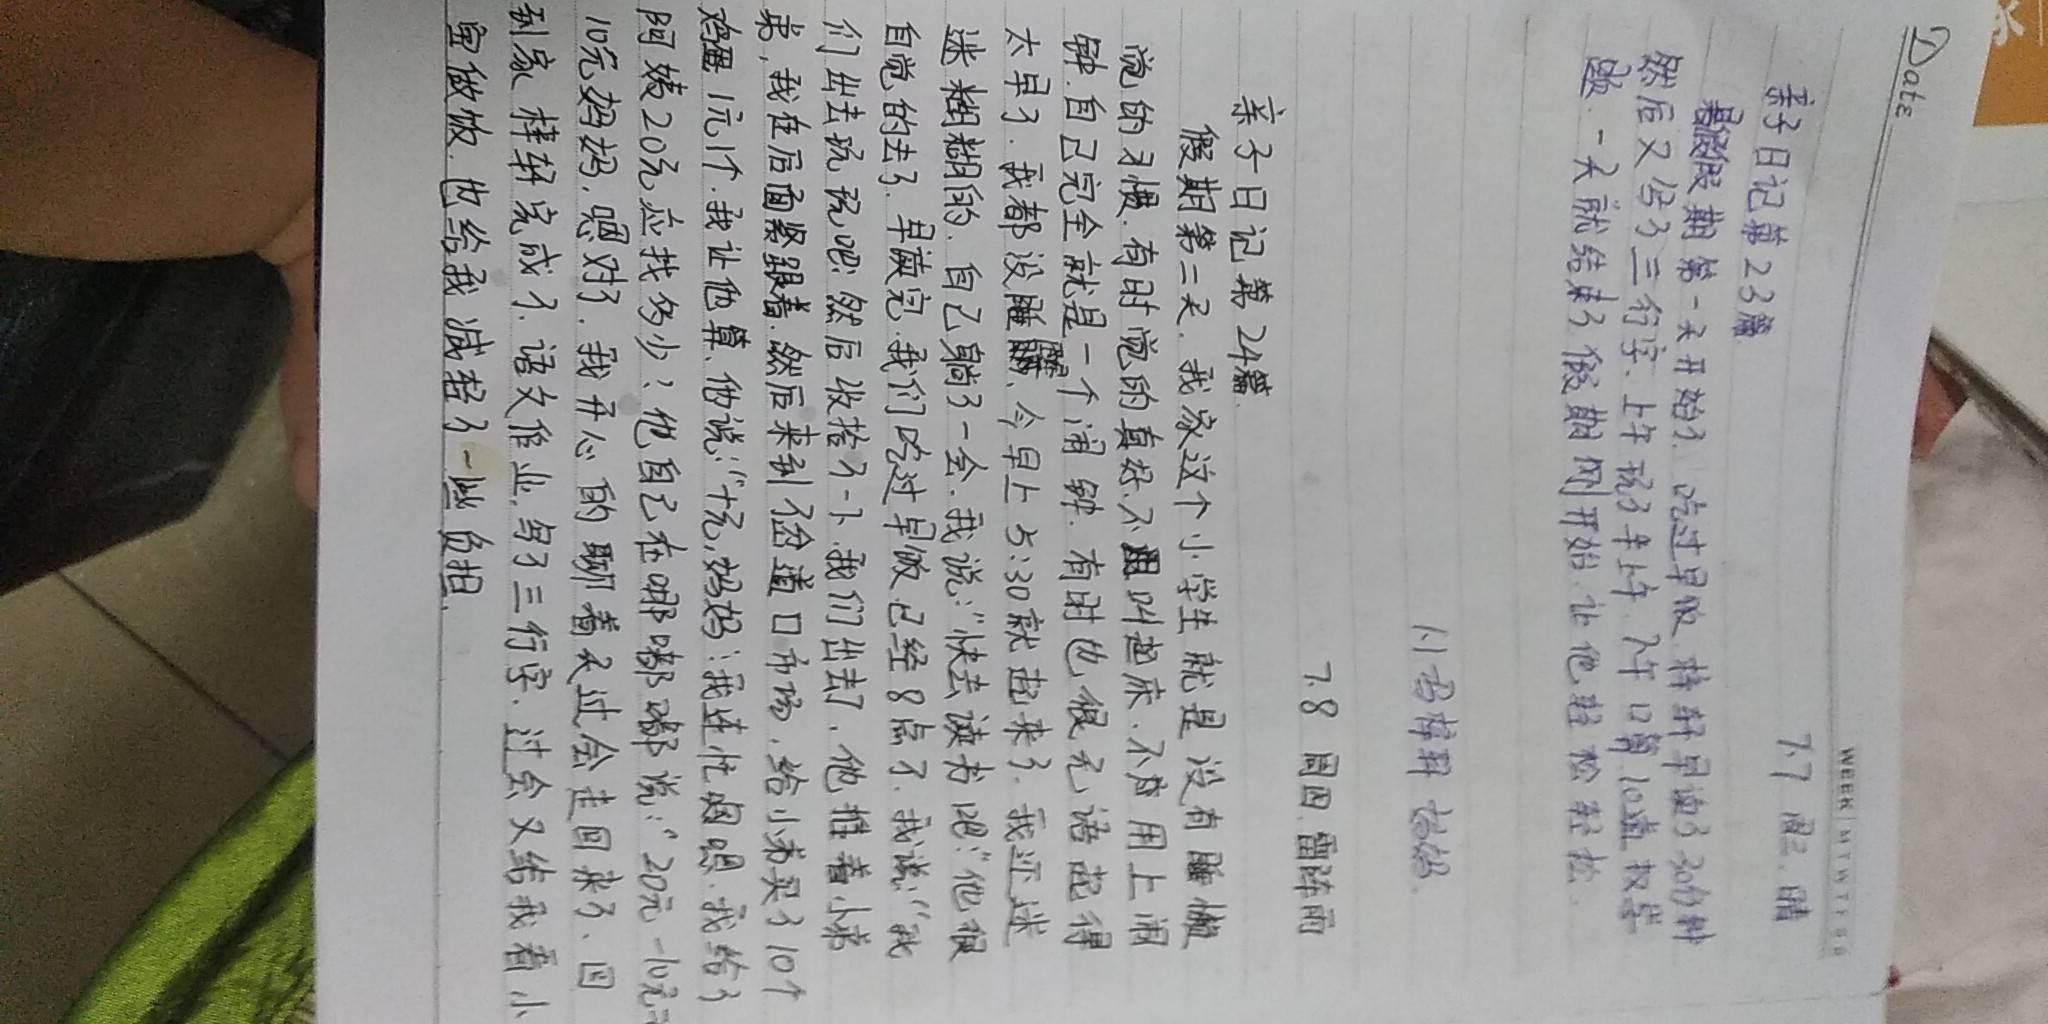 Date
WEEK M T W T F S S
亲子日记第23篇
7.7 周二.晴
暑假假期第一天开始了.吃过早饭.梓轩早读了30分钟
然后又写了三行字.上午玩了半上午.下午口算10道.拔尝
题.一天就结束了假期刚开始.让他轻松轻松.
1.1 梓轩妈妈.
7.8 周四.雷阵雨
亲子日记第24篇.
假期第二天.我家这个小学生就是没有睡懒
觉的习惯.有时觉的真好.不叫起床.不有用上闹
钟.自己完全就是一个闹钟.有时也很无语起得
太早了.我都没睡醒.今早上5:30就起来了.我还迷
迷糊糊的.自己躺了一会.我说:"快去读书吧."他很
自觉的去了.早读完.我们吃过早饭已经8点了.我说:"我
们出去玩玩吧.然后收拾了一下.我们出去了.他推着小弟
弟,我在后面紧跟着.然后来到了岔道口市场.给小弟买了10个
鸡蛋1元1个.我让他算.他说:"十元,妈妈:我连忙嗯嗯.我给了
阿姨20元应找多少?他自己在哪嘟嘟说:"20元-10元=
10元妈妈.嗯对了.我开心的聊着天过会走回来了.回
到家梓轩完成了.语文作业.写了三行字.过会又给我看小
宝做饭.也给我减轻了一些负担.